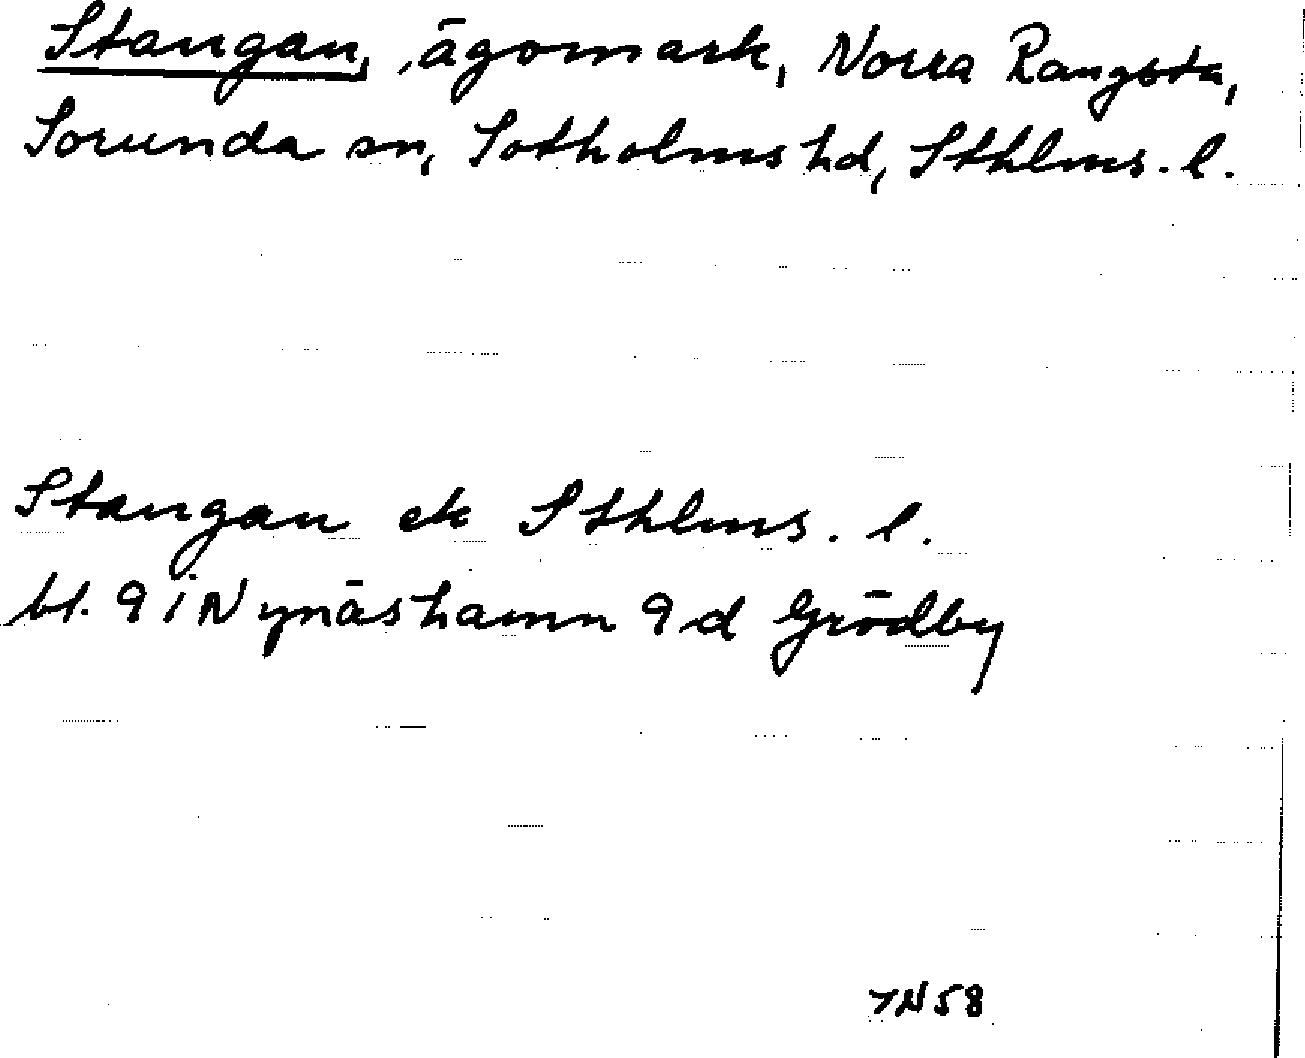 Stangan, ägomark, Norra Rangsta,
Sorunda sn, Sotholms hd, Sthlms. l.
Stangan ek Sthlms. l.
bl. 9 i Nynäshamn 9 d Grödby
7N58